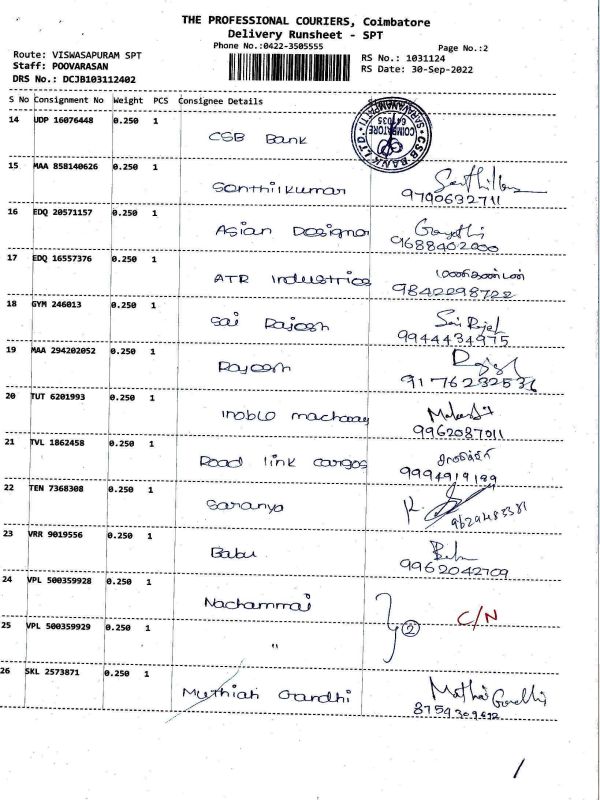 THE PROFESSIONAL COURIERS, Coimbatore
Delivery Runsheet - SPT
Phone No.:0422-3505555
Page No.:2
Route: VISWASAPURAM SPT
RS No.: 1031124
Staff: POOVARASAN
RS Date: 30-Sep-2022
DRS No.: DCJB103112402
S No Consignment No Weight PCS Consignee Details
14 UDP 16076448 0.250 1
CSB Bank
CSB BANK LTD SARAVANAMPATTI COIMBATORE 641035
15 MAA 858140626 0.250 1
Senthilkumar
9790632711
16 EDQ 20571157 0.250 1
Asian Designer Gayathri
9688402000
17 EDQ 16557376 0.250 1
ATR Industries மணிகண்டன்
9842298722
18 GYM 246013 0.250 1
Sai Rajesh Sai Rajesh
9944434975
19 MAA 294202052 0.250 1
Rajesh
9176232536
20 TUT 6201993 0.250 1
9962087011
21 TVL 1862458 0.250 1
Road link cargos
9994919199
22 TEN 7368308 0.250 1
Saranya
9629483381
23 VRR 9019556 0.250 1
Babu
9962042709
24 VPL 500359928 0.250 1
Nachammai
2 C/N
25 VPL 500359929 0.250 1
"
26 SKL 2573871 0.250 1
Muthiah Gandhi
8754309692